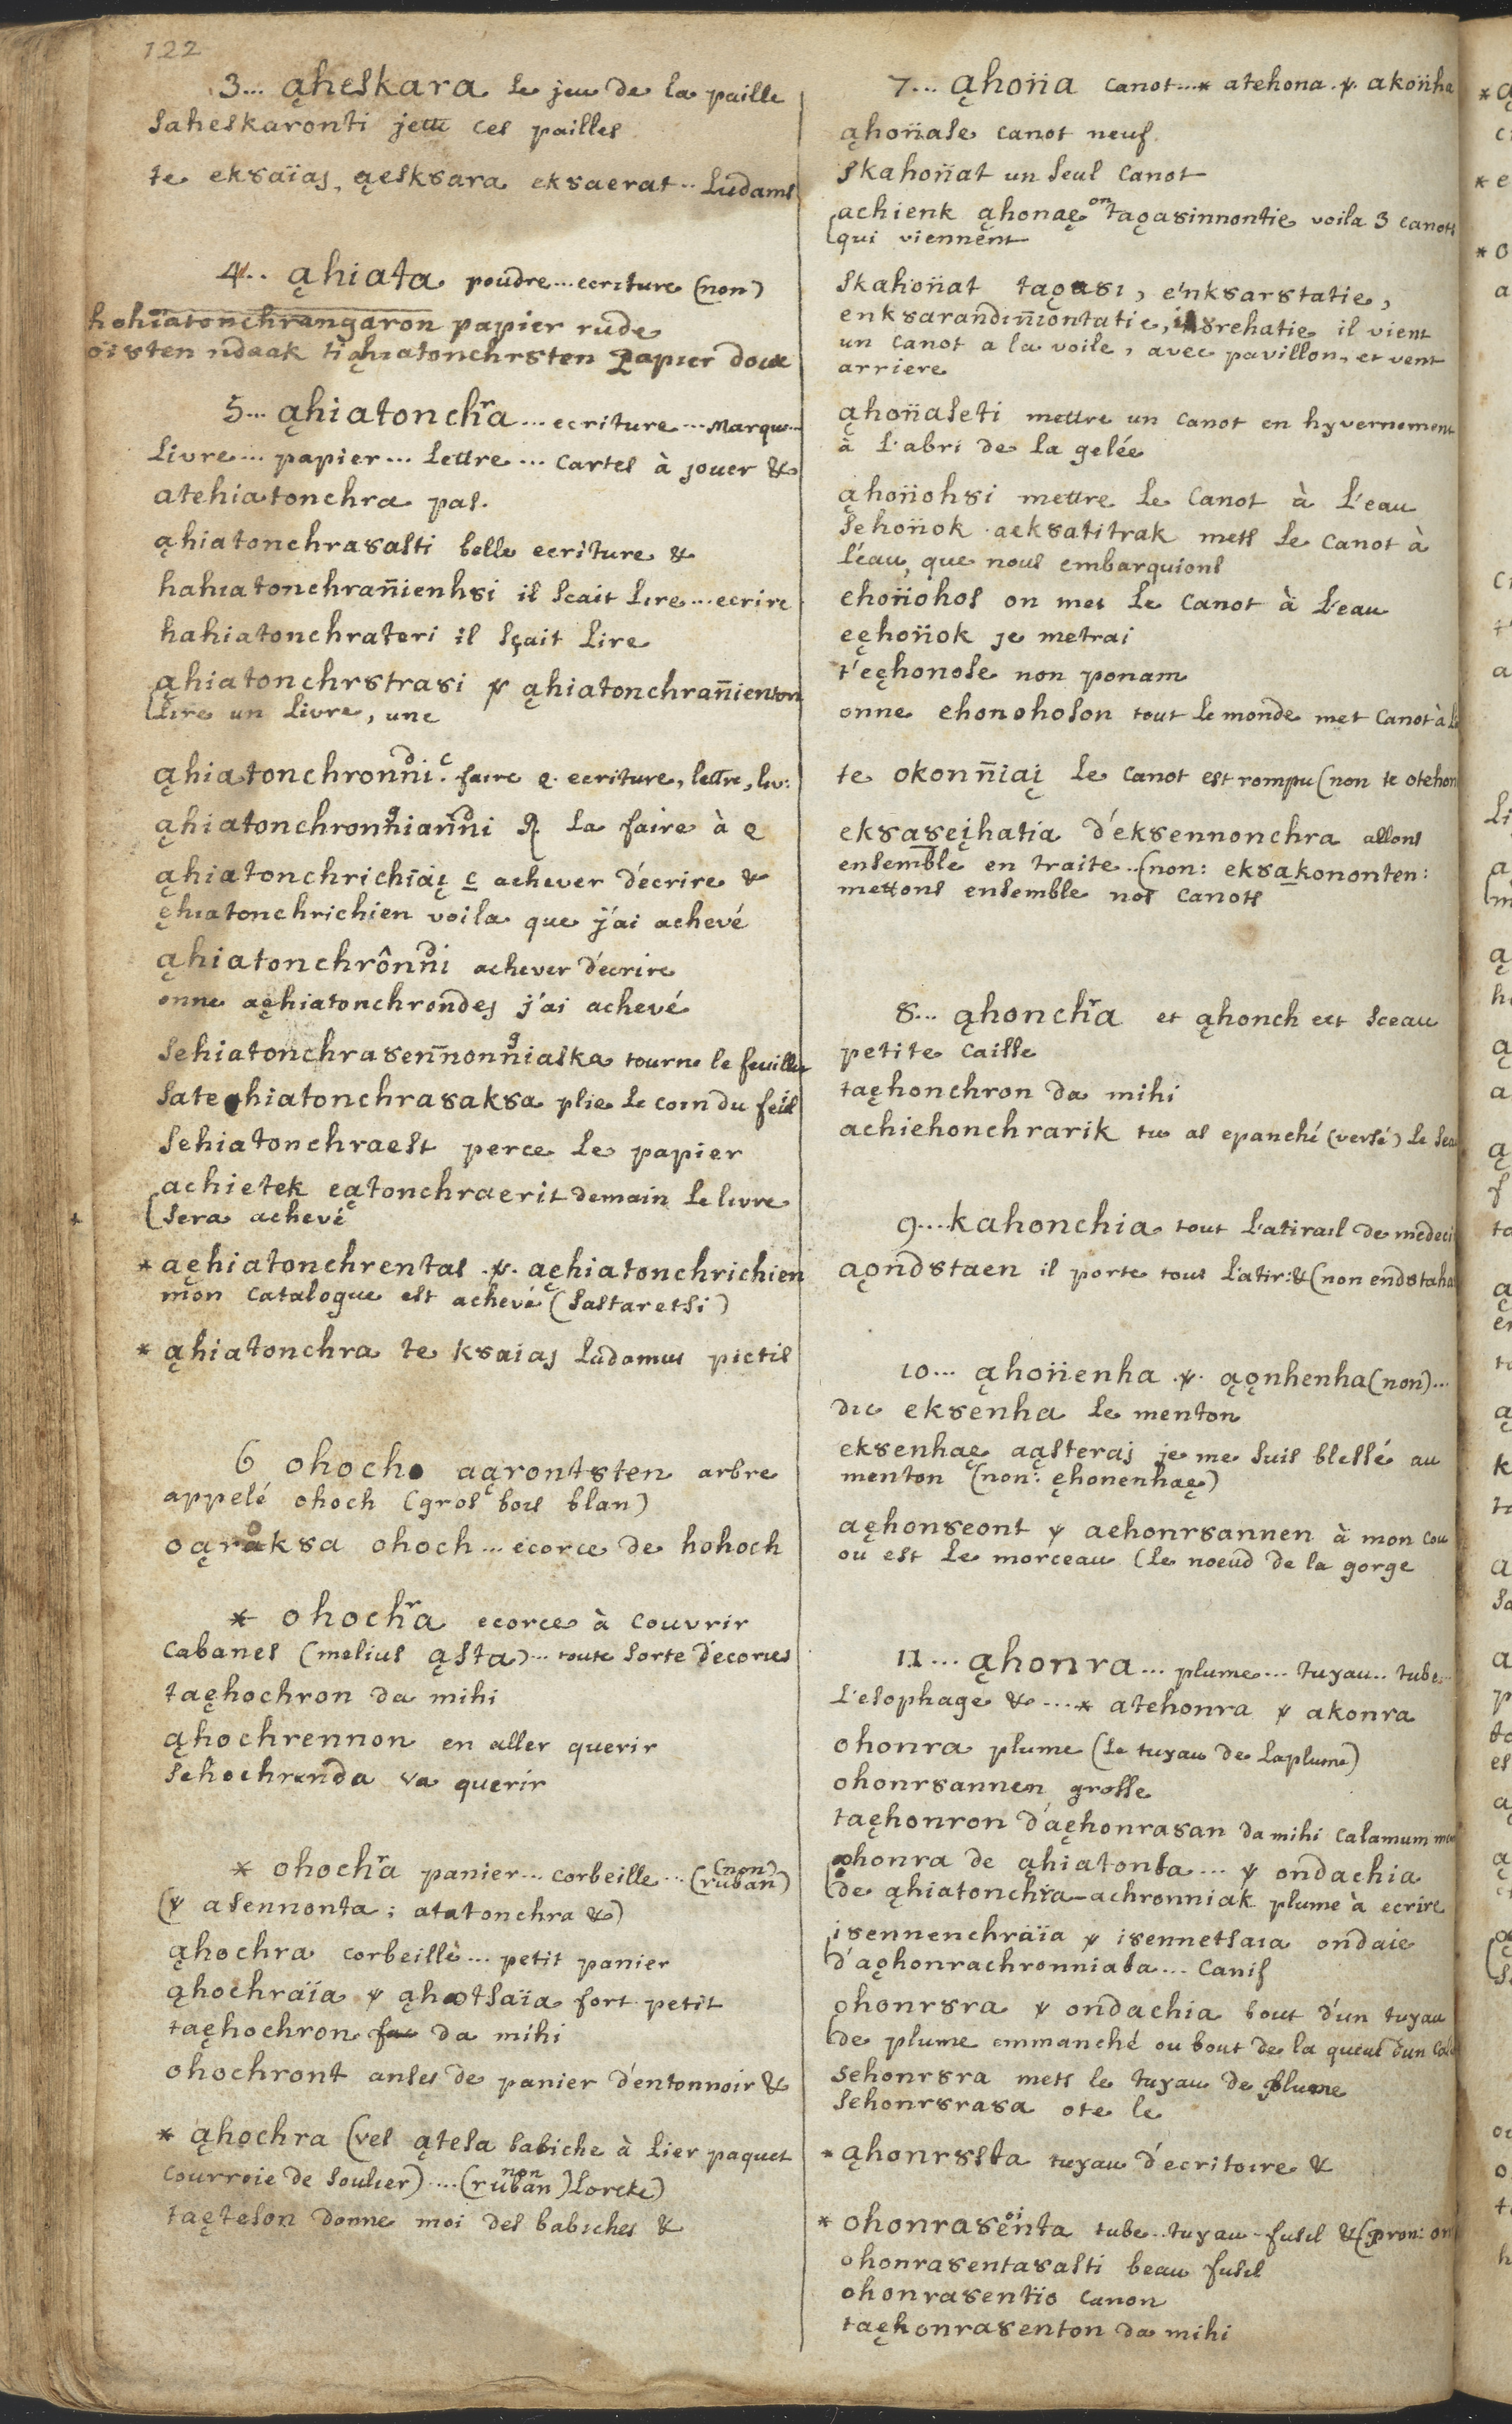 122
3... ąheskara le jeu de la paille
saheskaronti jette ces pailles
te ek8aïas, ąesk8ara ek8aerat.. Ludams
4.. ąhiata poudre... ecriture (non)
hohiatonchrangaron papier rude
oïsten ndaak tiąhiatonchr8ten papier doux
5... ąhiatonchra... ecriture... Marque...
Livre... papier... Lettre... Cartes à jouer &
atehiatonchra pas.
ąhiatonchra8asti belle ecriture &
hahiatonchrañienh8i il scait Lire... ecrire
hahiatonchrateri il sçait Lire
ąhiatonchr8tra8i ɣ ąhiatonchrañienton
Lire un Livre, une
ąhiatonchronndi. c faire q. ecriture, lettre, liv:
ąhiatonchronnianndi la faire à q
ąhiatonchrichiaį c achever d'écrire &
ęhiatonchrichien voila que j'ai achevé
ąhiatonchrônndi achever d'écrire
onne aęhiatonchrondes j'ai achevé
sehiatonchra8ennonniaska tourne le feuillet
satehiatonchra8ak8a plie le coin du feuil
sehiatonchraest perce le papier
achietek eątonchraerit demain le livre
sera achevé
* aęhiatonchrentas .ɣ. aęhiatonchrichien
mon Catalogue est achevé (sastaretsi)
* ąhiatonchra te k8aias Ludamus pictis
6 ohoch aąront8ten arbre
appelé ohoch (gros bois blan)
oąrak8a ohoch... écorce de hohoch
* ohochra ecorce à couvrir
Cabanes (melius ąsta)... toute sorte d'ecorces
taęhochron da mihi
ąhochrennon en aller querir
sehochrenda va querir
* ohochra panier... corbeille... (ruban) (non)
(ɣ asennonta; atatonchra &)
ąhochra corbeille... petit panier
ąhochraïa ɣ ąhotsaïa fort petit
taęhochron da mihi
ohochront anses de panier d'entonnoir &
* ąhochra (vel ątesa babiche à lier paquet
courroie de soulier).... (ruban non) Lorette)
taęteson donne moi des babiches &
7... ąhonna canot...* atehona .ɣ. akonnha
ąhonnase canot neuf
skahonnat un seul canot
achienk ąhonaę ontaǫa8innontie voila 3 canots
qui viennent
skahonnat taǫa8i, e'nk8ar8tatie,
enk8arandinniontatie, i8rehatie il vient
un canot a la voile, avec pavillon, et vent
arriere
ąhonnaseti mettre un canot en hyvernement
à l'abri de la gelée
ąhonnoh8i mettre le canot à l'eau
sehonnok aek8atitrak mets le canot à
l'eau, que nous embarquions
ehonnohos on met le canot à l'eau
eęhonnok je metrai
t'eęhonose non ponam
onne ehonohoson tout le monde met canot à l
te okonñiaį le canot est rompu (non te otehon
ek8a8eįhatia d'ek8ennonchra allons
ensemble en traite.. (non: ek8akononten:
mettons ensemble nos canots
8... ąhonchra et ąhonch ect sceau
petite caisse
taęhonchron da mihi
achiehonchrarik tu as epanché (versé) le sea
9.... kahonchia tout l'atirail de medeci
aǫnd8taen il porte tous l'atir: & (non end8taha
10... ąhonnenha .ɣ. ąǫnhenha (non)...
dic ek8enha le menton
ek8enhaę aąsteras je me suis blessé au
menton (non: ęhonenhaę)
aęhon8eont ɣ aehonr8annen à mon cou
ou est le morceau (le noeud de la gorge
11... ąhonra... plume... tuyau.. tube...
l'esophage &....* atehonra ɣ akonra
ohonra plume (le tuyau de la plume)
ohonr8annen grosse
taęhonron d'aęhonra8an da mihi calamum
ohonra de ąhiatonta... ɣ ondachia
de ąhiatonchra-achronniak plume à ecrire
i8ennenchraïa ɣ i8ennetsaia ondaie
d'aǫhonrachronniata... Canif
ohonr8ra ɣ ondachia bout d'un tuyau
de plume emmanché ou bout de la queue d'un
sehonr8ra mets le tuyau de plume
sehonr8ra8a ote le
* ąhonr8sta tuyau d'ecritoire &
* ohonra8enta tube.. tuyau.. fusil & (pron: on
ohonra8enta8asti beau fusil
ohonra8entio canon
taęhonra8enton da mihi